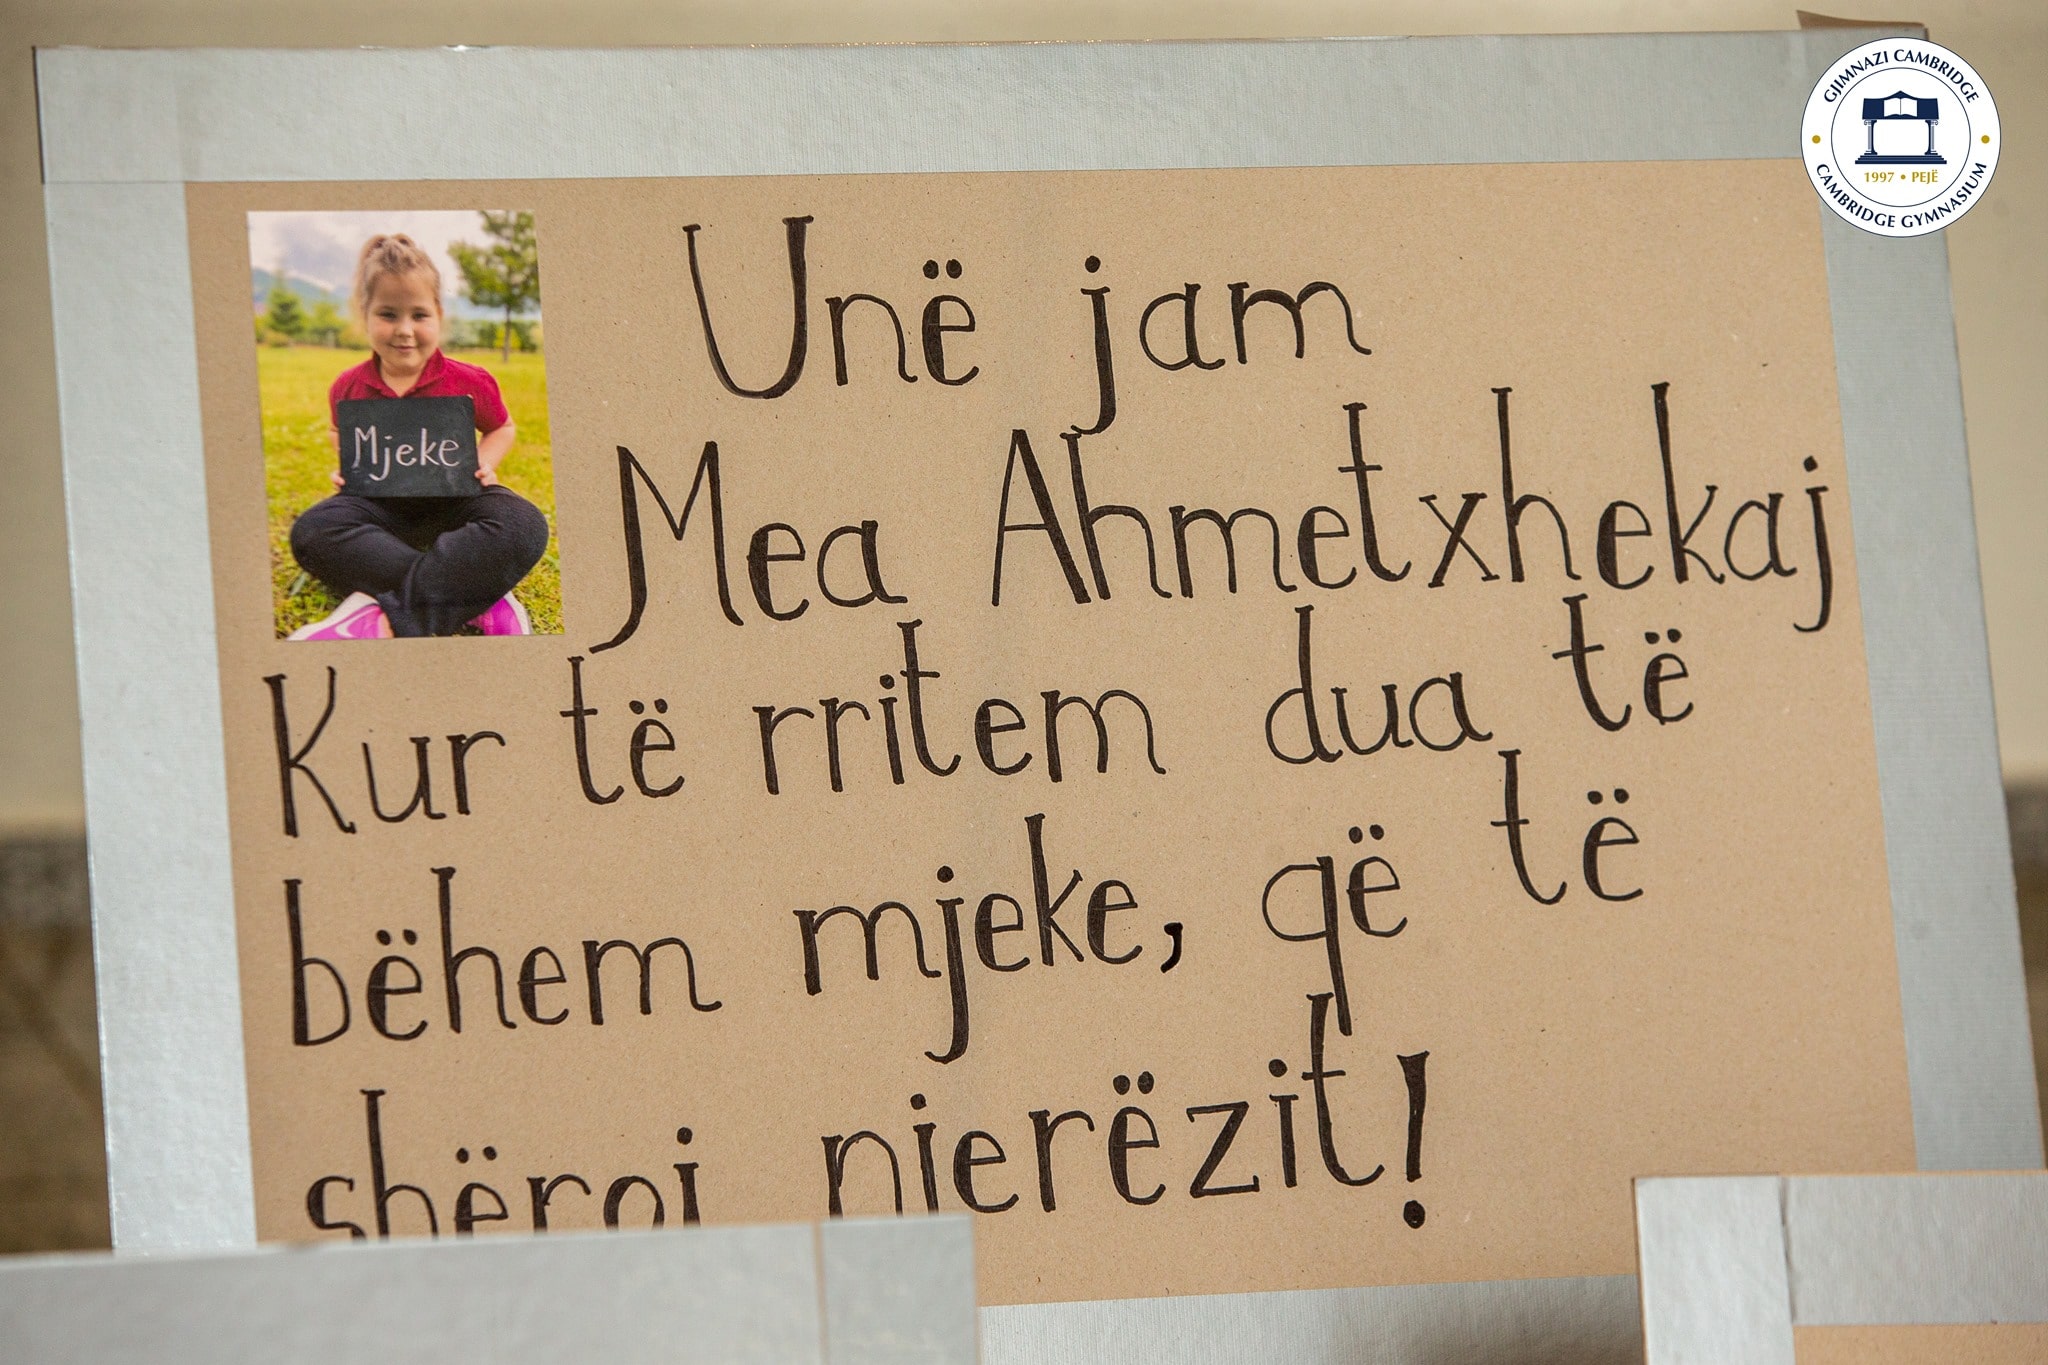 GJIMNAZI CAMBRIDGE
1997 • PEJË
CAMBRIDGE GYMNASIUM
Mjeke
Unë jam
Mea Ahmetxhekaj
Kur të rritem dua të
bëhem mjeke, që të
shëroj njerëzit!